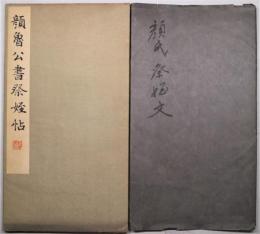 顏魯公書祭姪帖
顔氏祭姪文